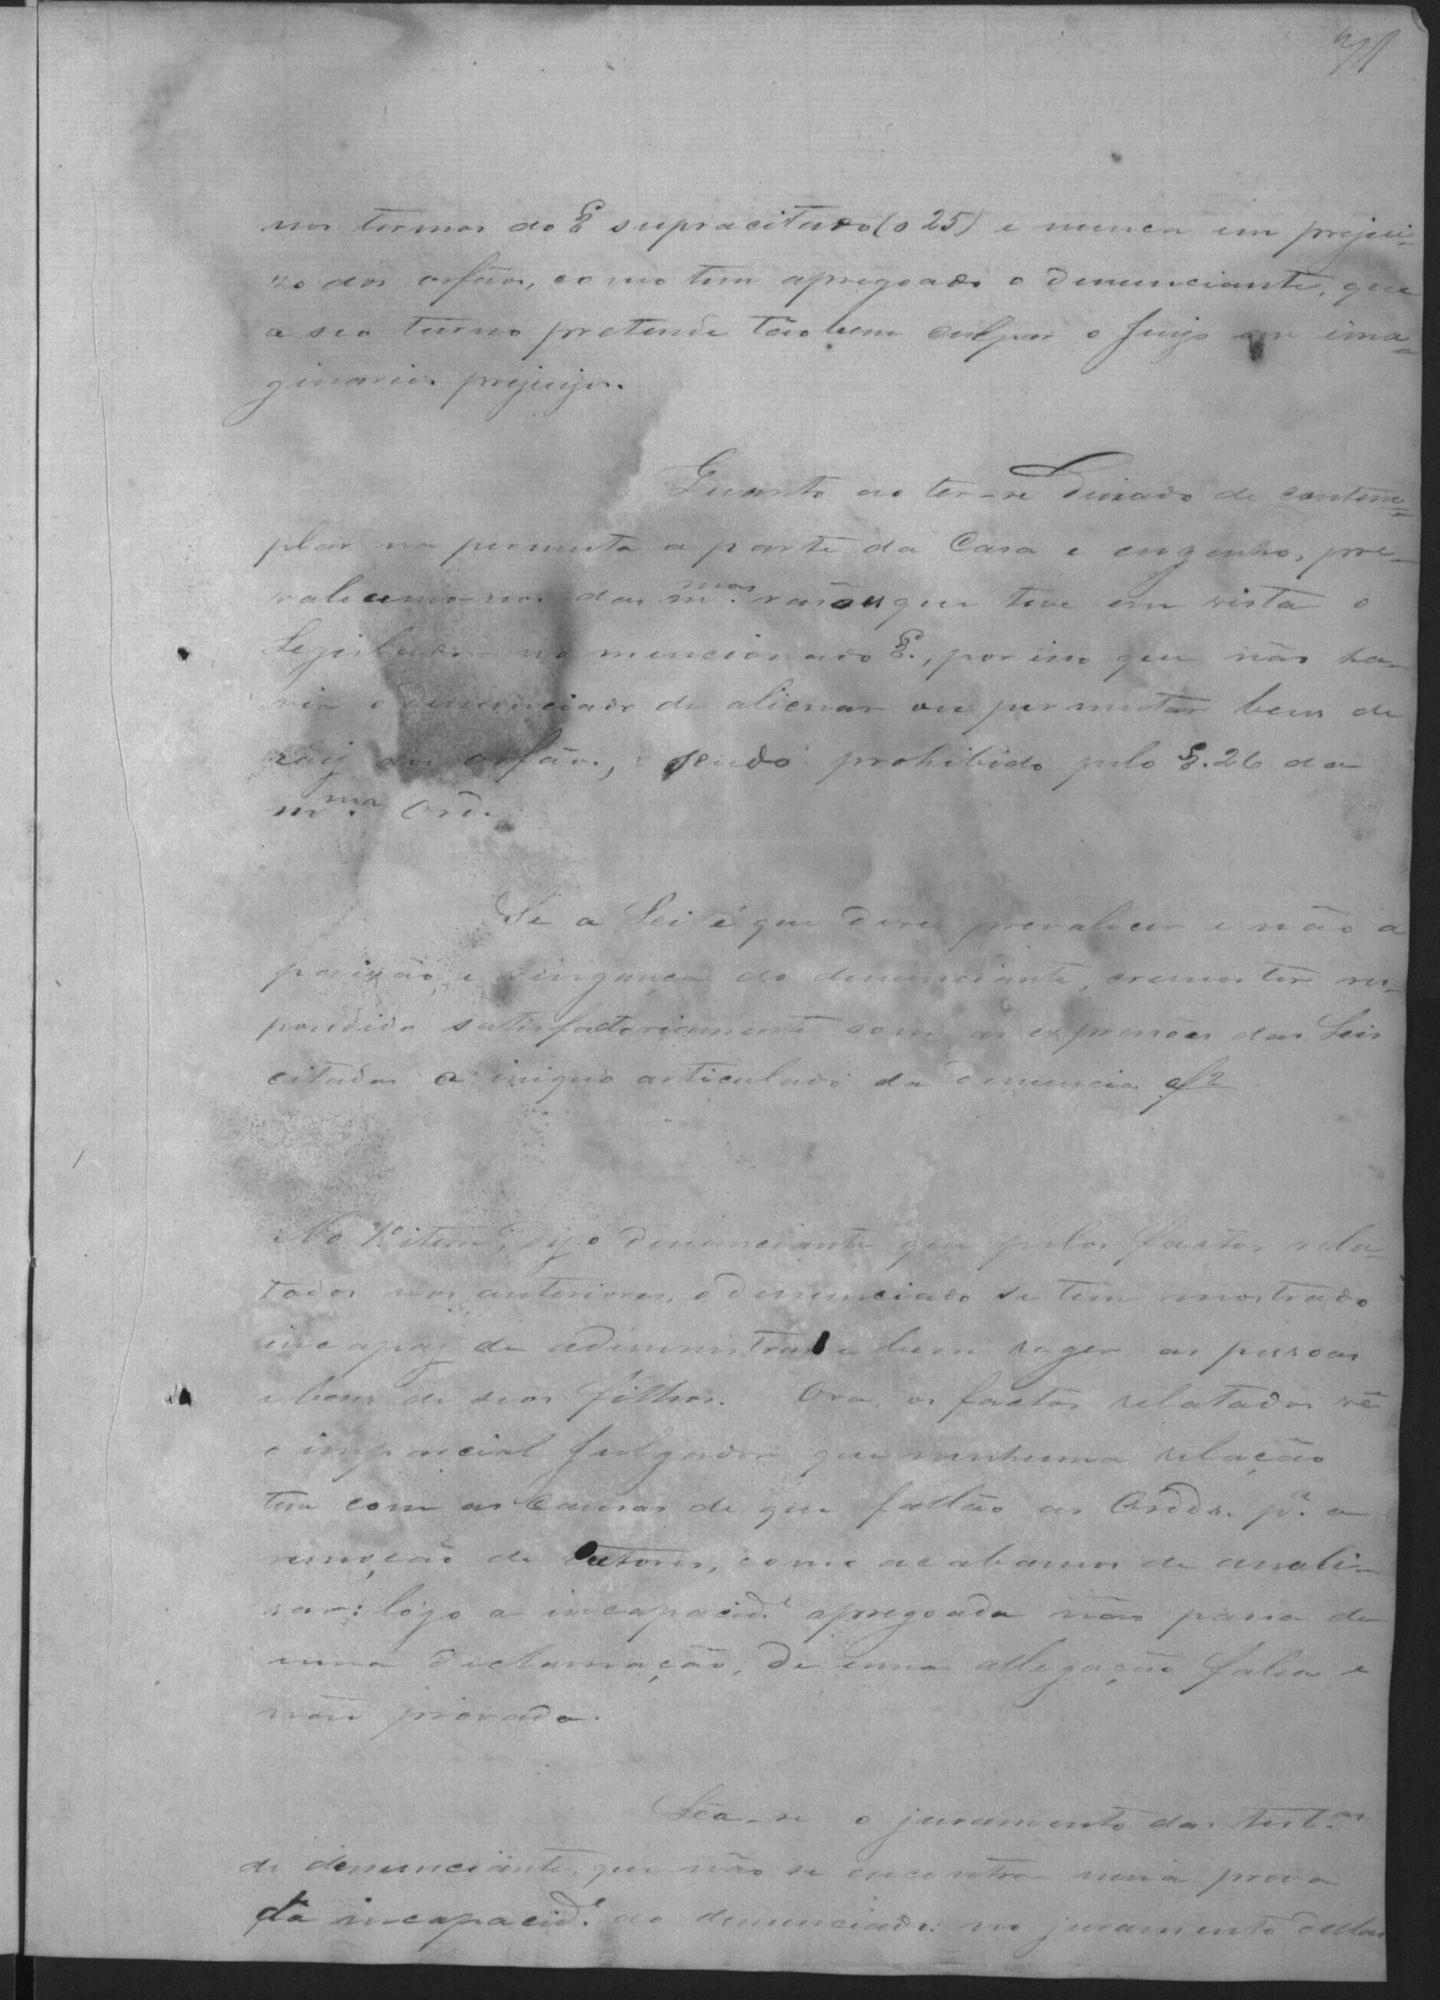 nos termos do § supracitado (o 25) e nunca em prejui-
zo dos orfãos, como tem apregoado o denunciante, que
a seo turno pretende tão bem culpar o Juizo em ima-
ginarios prejuizos.
Quanto ao ter-se deixado de contem-
plar na permuta a parte da Casa e engenho, pre-
valecemo-nos das m.mas rasões que teve em vista o
Legislador no mencionado §., por isso que não ha-
via o denunciado de alienar ou permutar bens de
raiz dos orfãos, sendo prohibido pelo §. 26 da
m.ma Ord.
Se a Lei é que deve prevalecer e não a
paixão e vingança do denunciante, cremos ter res-
pondido satisfactoriamente com as expressões das Leis
citadas o iniquo articulado da denuncia
No 7.º item, diz o denunciante que pelos factos rela-
tados nos anteriores, o denunciado se tem mostrado
incapaz de administrar e bem reger as pessoas
e bens de seos filhos. Ora, os factos relatados vê
o imparcial Julgador que nenhuma relação
tem com as causas de que fallão as Ordds. p.ª a
remoção de tutores, como acabamos de anali-
sar: lógo a incapacid.e apregoada não passa de
uma declamação, de uma allegação falsa e
não provada.
Lêa-se o juramento das test.as
do denunciante, que não se encontra uma prova
da incapacid.e do denunciado: no juramento dellas